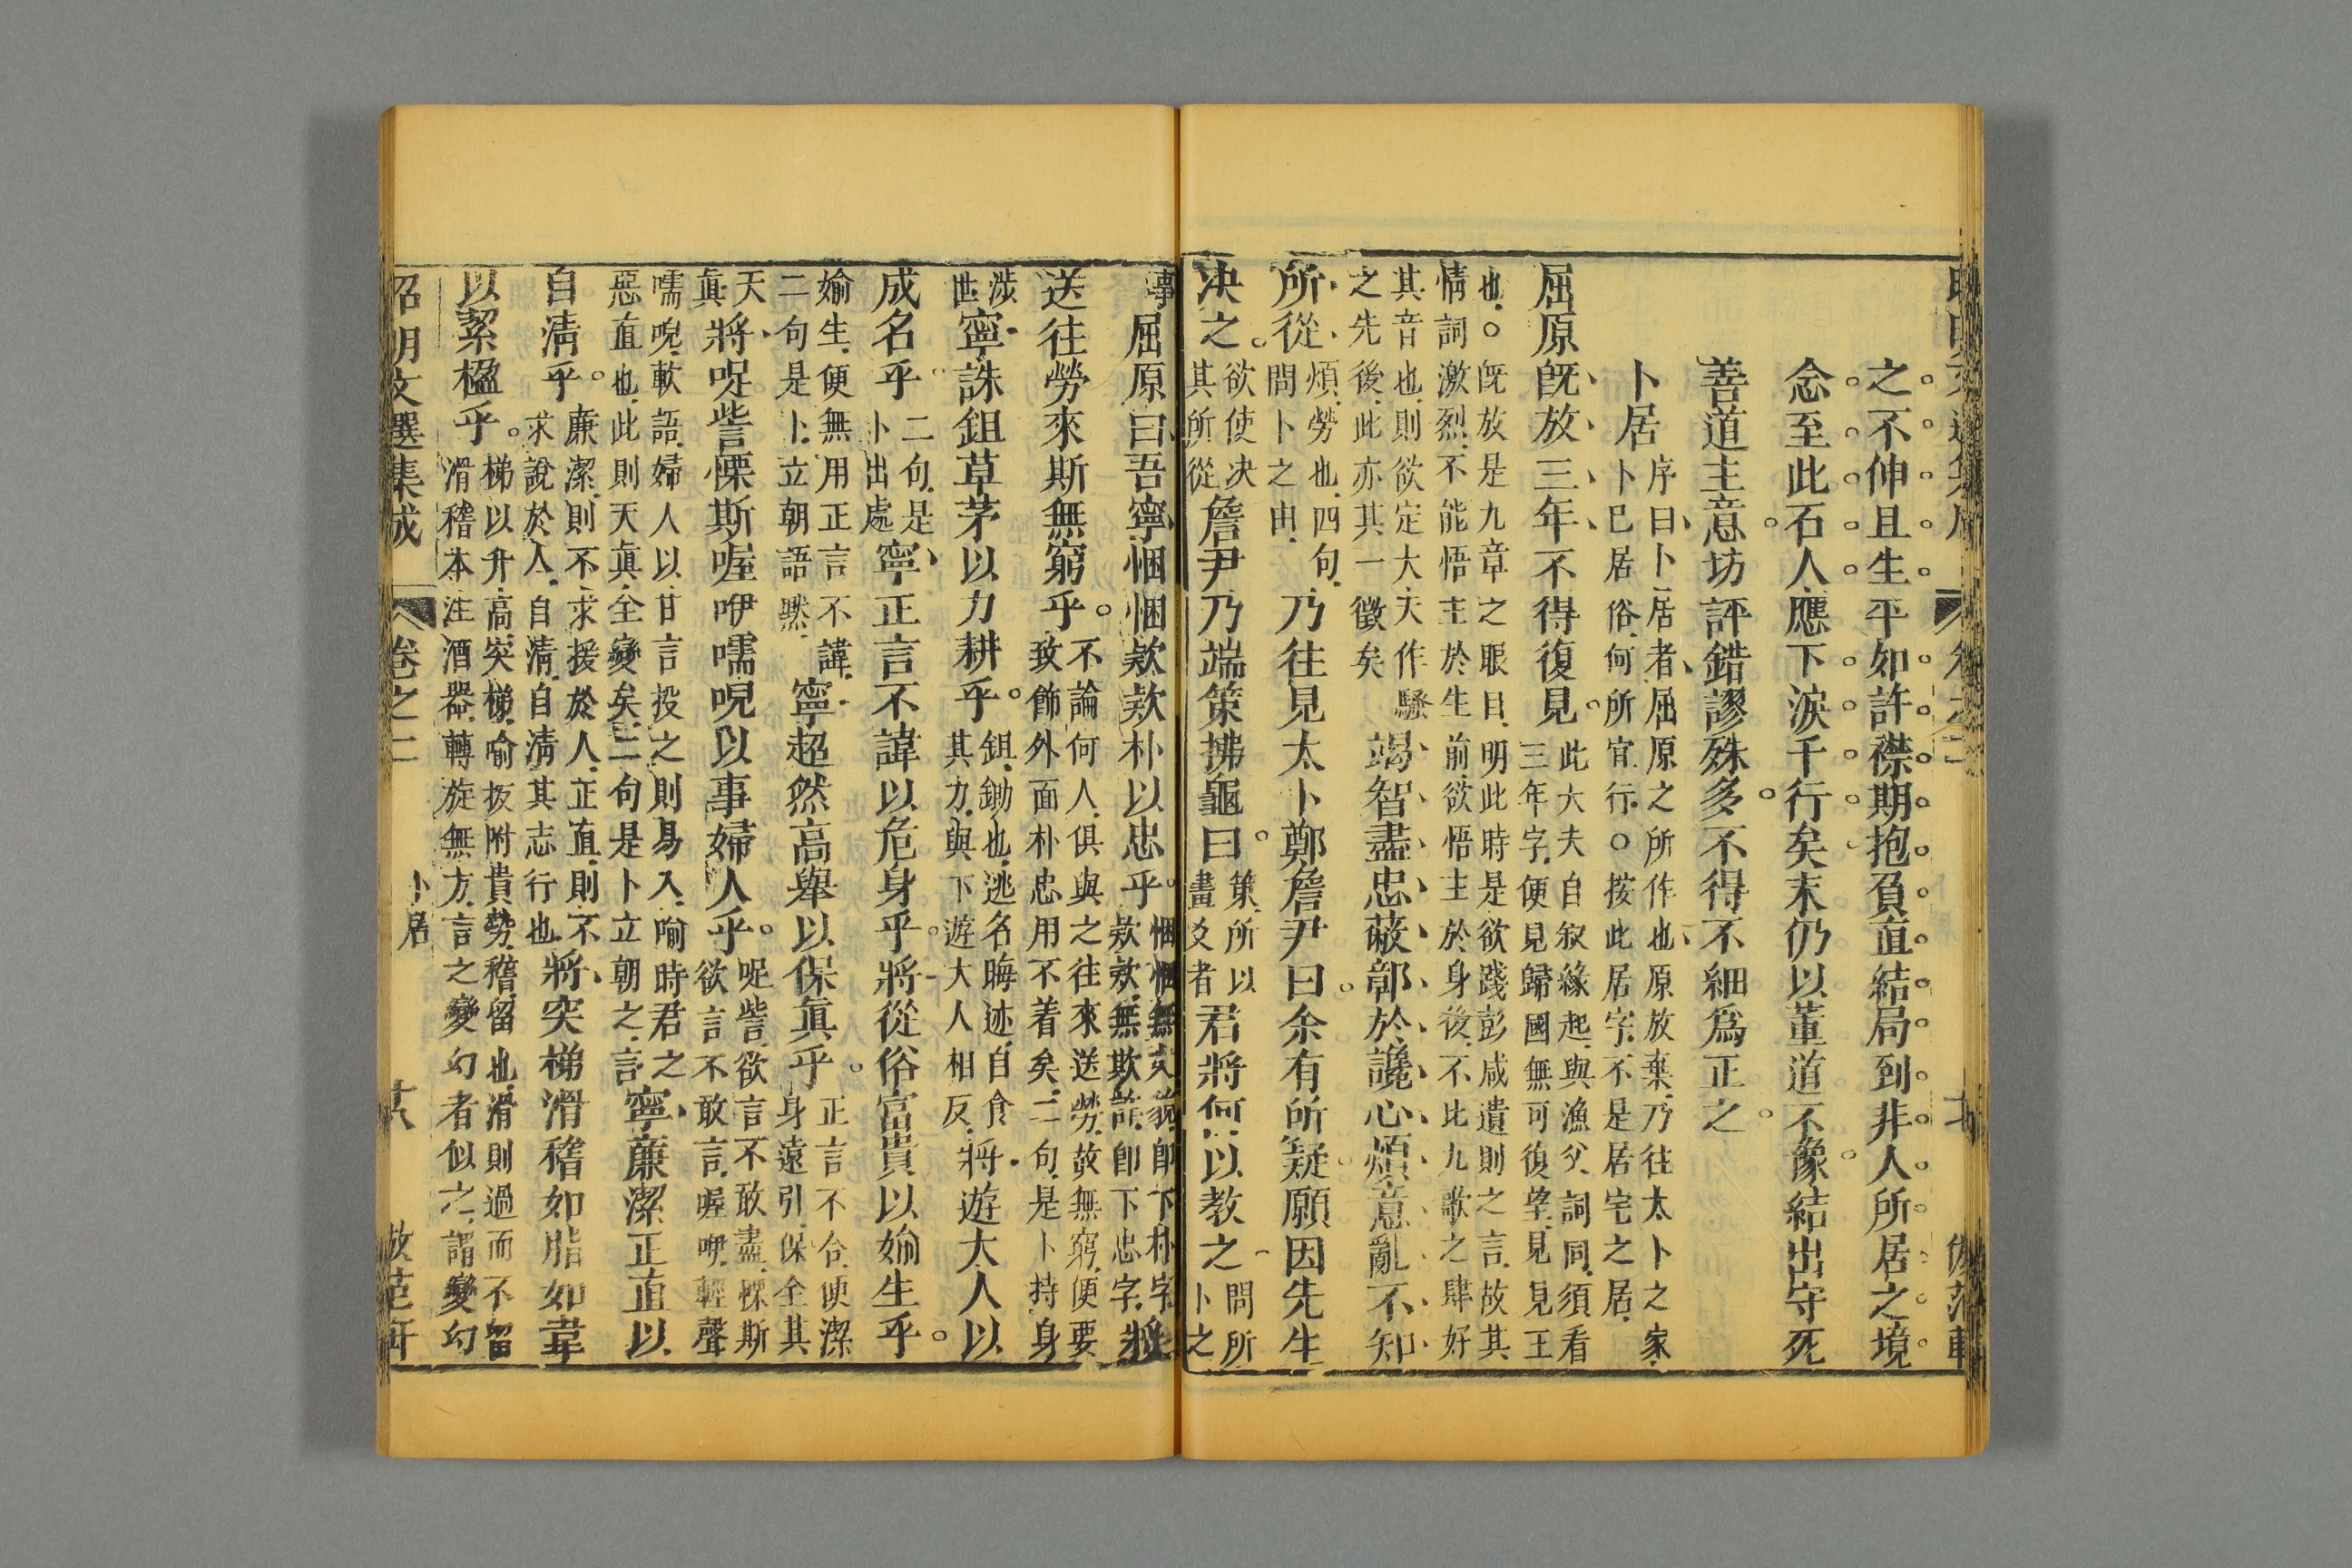 之不伸且生平如許襟期抱負直結局到非人所居之境
念至此石人應下淚千行矣末仍以董道不豫結出守死
善道主意坊評錯謬殊多不得不細爲正之
卜居
序曰卜居者屈原之所作也原放棄乃往太卜之家
卜已居俗何所宜行○按此居字不是居宅之居
屈原既放三年不得復見
此大夫自叙緣起與漁父詞同須看
三年字便見歸國無可復望見見王
也○既放是九章之眼目明此時是欲踐彭咸遺則之言故其
情詞激烈不能悟主於生前欲悟主於身後不比九歌之肆好
其音也則欲定大夫作騷
之先後此亦其一徵矣
竭智盡忠蔽鄣於讒心煩意亂不知
所從
煩勞也四句
問卜之由
乃往見太卜鄭詹尹曰余有所疑願因先生
决之
欲使决
其所從
詹尹乃端策拂龜曰
策所以
畫爻者
君將何以教之
問所
卜之
事
屈原曰吾寧悃悃欵欵朴以忠乎
悃悃無文貌卽下朴字
欵欵無欺詐卽下忠字
將
送往勞來斯無窮乎
不論何人俱與之往來送勞故無窮便要
致飾外面朴忠用不着矣二句是卜持身
涉
世
寧誅鉏草茅以力耕乎
鉏鋤也逃名晦迹自食
其力與下遊大人相反
將遊大人以
成名乎
二句是
卜出處
寧正言不諱以危身乎將從俗富貴以媮生乎
媮生便無用正言不諱
二句是卜立朝語黙
寧超然高舉以保眞乎
正言不合便潔
身遠引保全其
天
眞
將哫訾慄斯喔咿嚅唲以事婦人乎
哫訾欲言不敢盡慄斯
欲言不敢言喔咿輕聲
嚅唲軟語婦人以甘言投之則易入喻時君之
惡直也此則天眞全變矣二句是卜立朝之言
寧廉潔正直以
自清乎
廉潔則不求援於人正直則不
求說於人自清自清其志行也
將突梯滑稽如脂如韋
以絜楹乎
梯以升高突梯喻扳附貴勢稽留也滑則過而不留
滑稽本注酒器轉旋無方言之變幻者似之謂變幻
昭明文選集成
卷之二
卜居
廿八